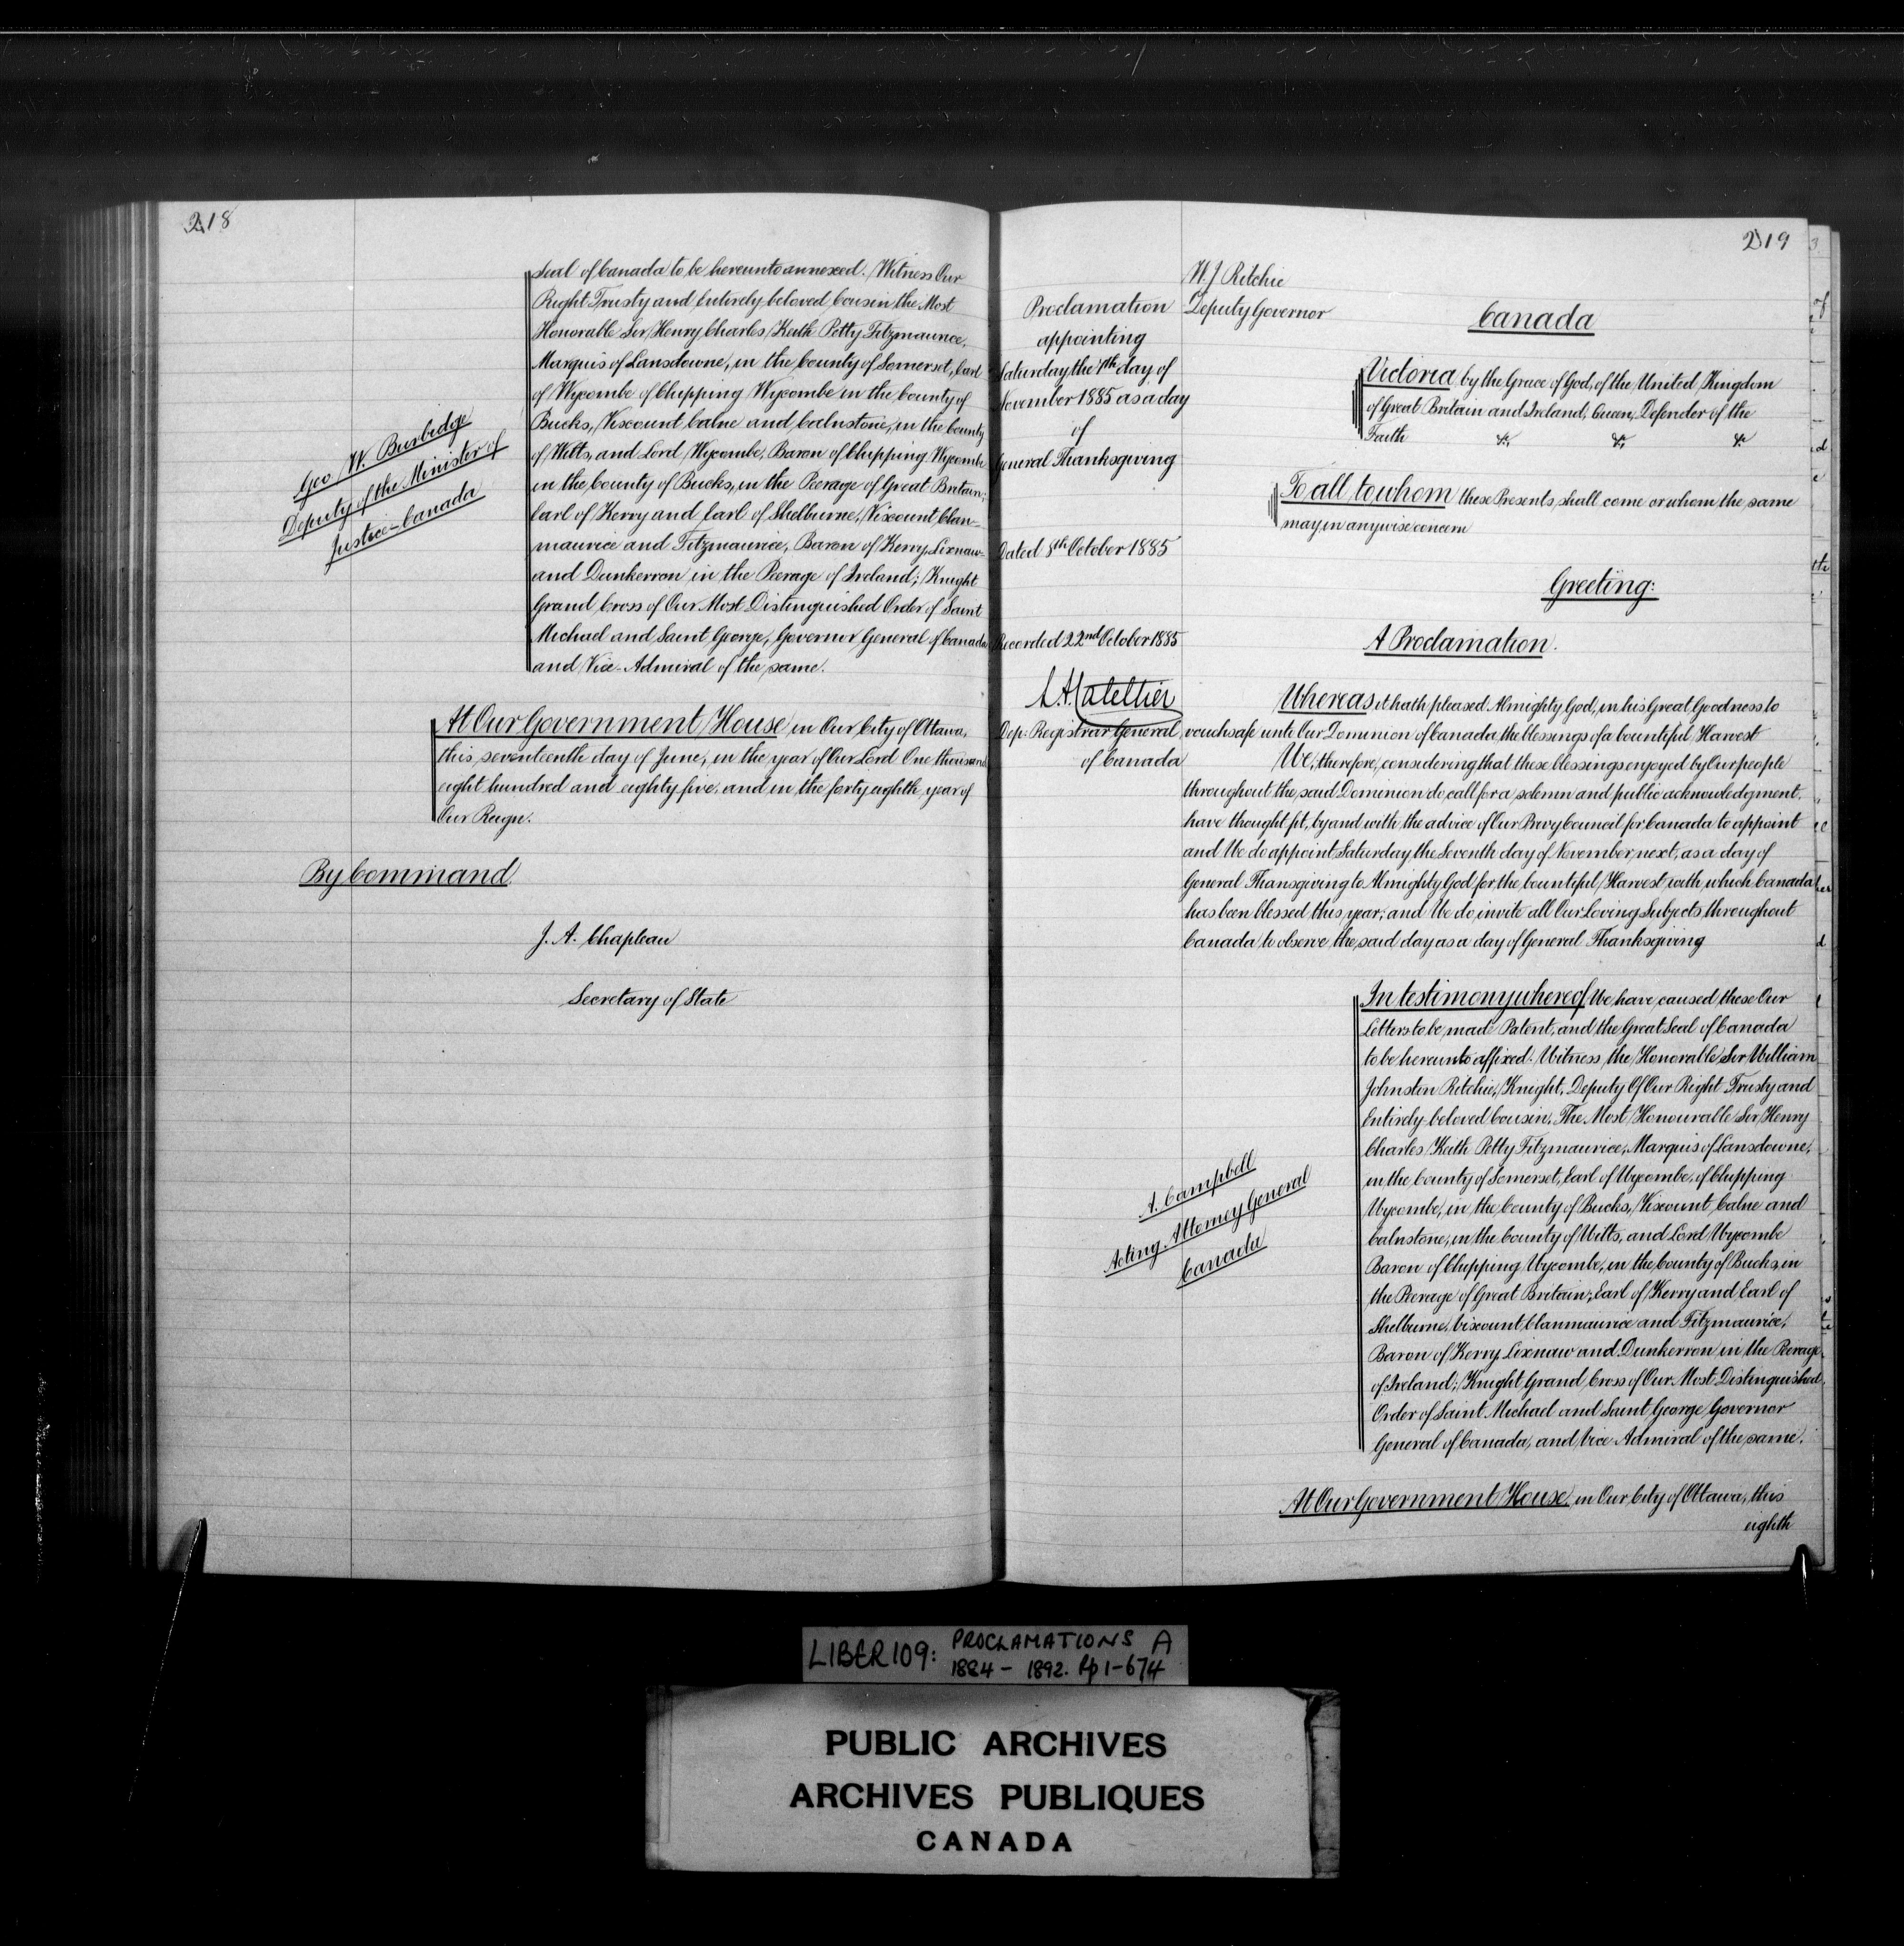 218
Seal of Canada to be hereunto annexed. Witness Our
Right Trusty and Entirely beloved Cousin the Most
Honorable Sir Henry Charles Keith Petty Fitzmaurice,
Marquis of Lansdowne, in the County of Somerset, Earl
of Wycombe of Chipping Wycombe in the County of
Bucks, Viscount Calne and Calnstone, in the County
of Wilts, and Lord Wycombe, Baron of Chipping Wycombe
in the County of Bucks, in the Peerage of Great Britain;
Earl of Kerry and Earl of Shelburne, Viscount Clan-
maurice and Fitzmaurice, Baron of Kerry, Lixnaw
and Dunkerron in the Peerage of Ireland; Knight
Grand Cross of Our Most Distinguished Order of Saint
Michael and Saint George, Governor General of Canada
and Vice-Admiral of the same.
Geo W. Burbidge
Deputy of the Minister of
Justice-Canada
At Our Government House in Our City of Ottawa,
this seventeenth day of June, in the year of Our Lord One thousand
eight hundred and eighty five, and in the forty eighth year of
Our Reign.
By Command
J. A. Chapleau
Secretary of State
219
W. J Ritchie
Deputy Governor
Proclamation
appointing
Saturday the 7th day of
November 1885 as a day
of
General Thanksgiving
Dated 8th October 1885
Recorded 22nd October 1885
L. A. Catellier
Dep: Registrar General
of Canada
Canada
Victoria by the Grace of God, of the United Kingdom
of Great Britain and Ireland, Queen, Defender of the
Faith &c &c &c
To all to whom these Presents shall come or whom the same
may in anywise concern
Greeting:
A Proclamation.
Whereas it hath pleased Almighty God, in his Great Goodness to
vouchsafe unto Our Dominion of Canada the blessings of a bountiful Harvest
We, therefore, considering that these blessings enjoyed by Our people
throughout the said Dominion do call for a solemn and public acknowledgment,
have thought fit, by and with the advice of Our Privy Council for Canada to appoint
and We do appoint Saturday the Seventh day of November next, as a day of
General Thansgiving to Almighty God for the bountiful Harvest with which Canada
has been blessed this year; and We do invite all Our Loving Subjects throughout
Canada to observe the said day as a day of General Thanksgiving
In testimony whereof We have caused these Our
Letters to be made Patent, and the Great Seal of Canada
to be hereunto affixed. Witness the Honorable Sir William
Johnston Ritchie, Knight, Deputy Of Our Right Trusty and
Entirely beloved Cousin, The Most Honourable Sir Henry
Charles Keith Petty Fitzmaurice, Marquis of Lansdowne,
in the County of Somerset, Earl of Wycombe, of Chipping
Wycombe, in the County of Bucks, Viscount Calne and
Calnstone, in the County of Wilts, and Lord Wycombe
Baron of Chipping Wycombe, in the County of Bucks, in
the Peerage of Great Britain; Earl of Kerry and Earl of
Shelburne, Viscount Clanmaurice and Fitzmaurice,
Baron of Kerry, Lixnaw and Dunkerron in the Peerage
of Ireland; Knight Grand Cross of Our Most Distinguished
Order of Saint Michael and Saint George Governor
General of Canada, and Vice Admiral of the same.
A. Campbell
Acting Attorney General
Canada
At Our Government House, in Our City of Ottawa, this
eighth
LIBER 109: PROCLAMATIONS A
1884 - 1892. Pp 1-674
PUBLIC ARCHIVES
ARCHIVES PUBLIQUES
CANADA